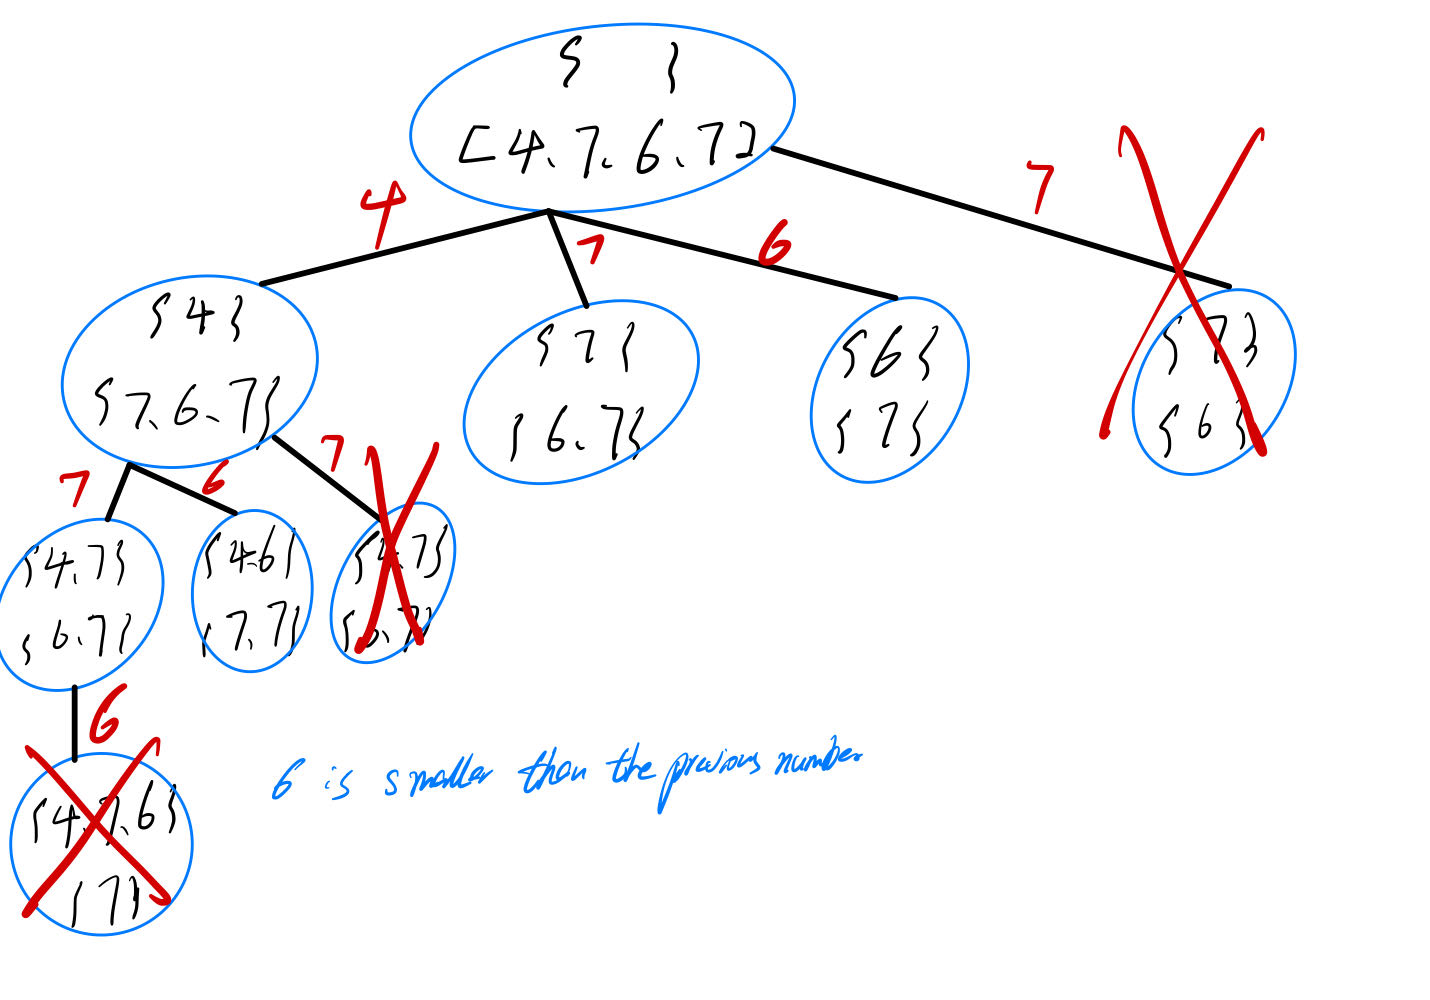 { }
[4, 7, 6, 7]
4
7
6
7
{4}
{7, 6, 7}
{7}
{6, 7}
{6}
{7}
{7}
{6}
7
6
7
{4, 7}
{6, 7}
{4, 6}
{7, 7}
{4, 7}
{6, 7}
6
{4, 7, 6}
{7}
6 is smaller than the previous number